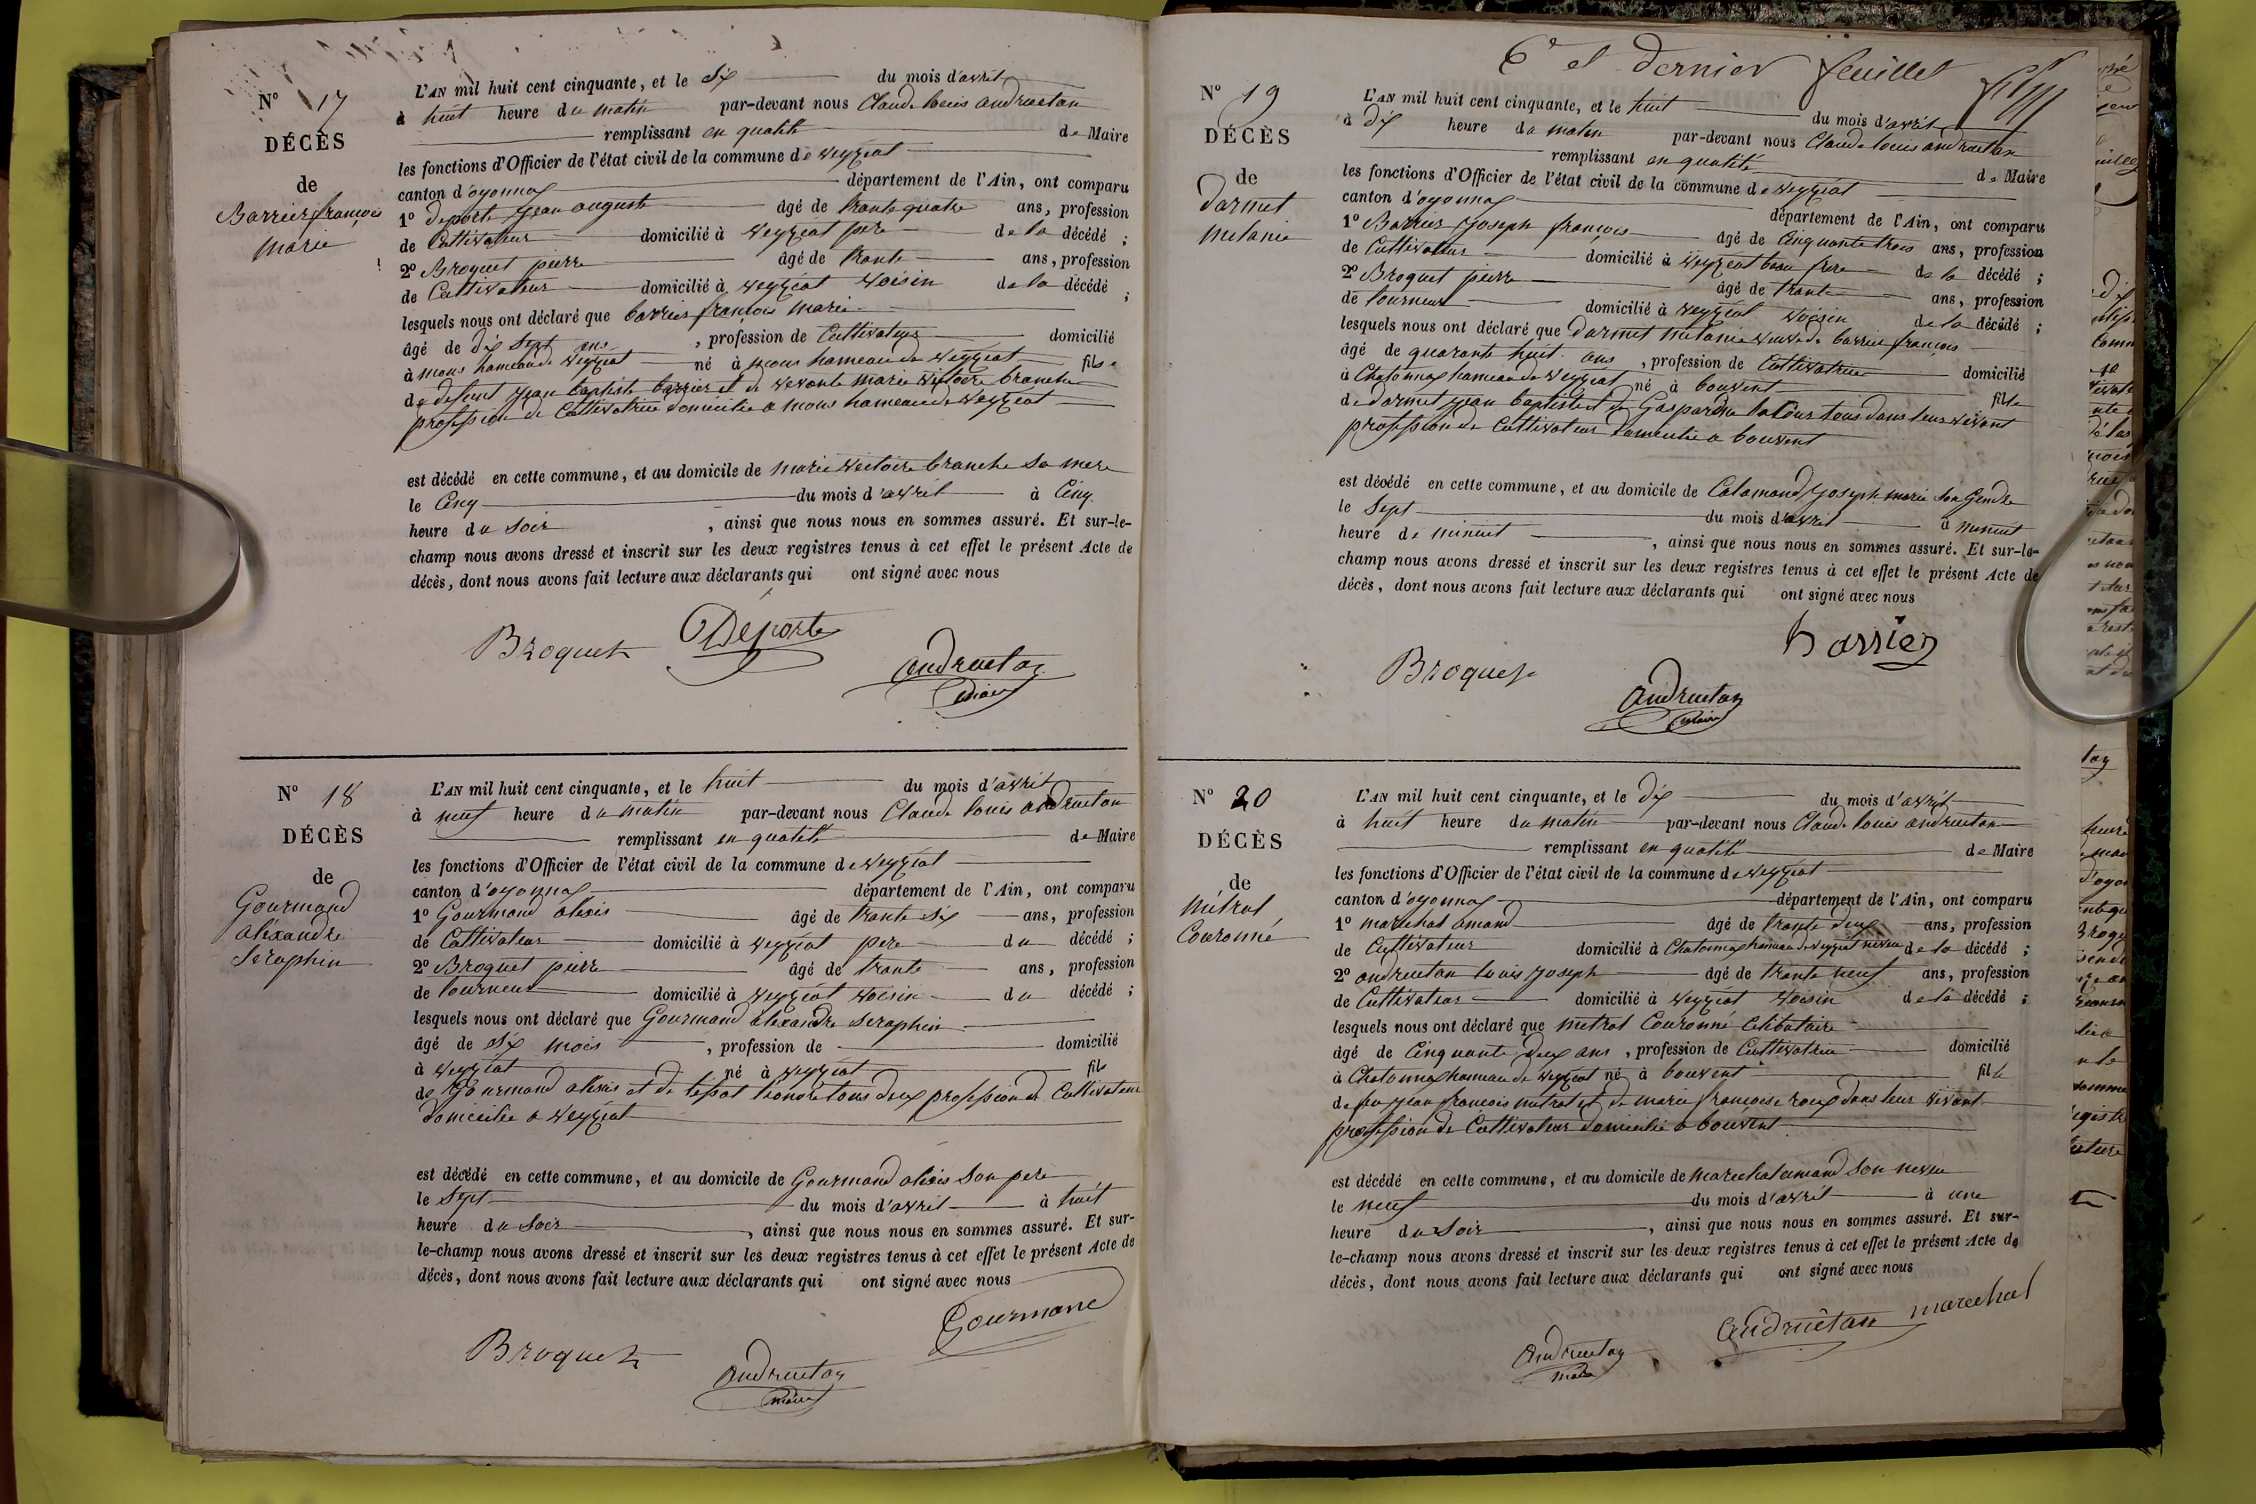 N° 17
DÉCÈS
de
Barrier françois
marie
L'AN mil huit cent cinquante, et le six du mois d'avril
à huit heure du matin par-devant nous Claude louis andruetan
remplissant en qualité de Maire
les fonctions d'Officier de l'état civil de la commune de veyziat
canton d'oyonnax département de l'Ain, ont comparu
1° deporte jean auguste âgé de trante quatre ans, profession
de Cultivateur domicilié à veyziat pere de la décédé ;
2° Broquet pierre âgé de trante ans, profession
de Cultivateur domicilié à veyziat voisin de la décédé ;
lesquels nous ont déclaré que barrier françois marie
âgé de dix sept ans, profession de Cultivateur domicilié
à mons hameau de veyziat né à mons hameau de veyziat fils
de defunt jean baptiste barrier et de vivante marie victoire branche
profession de Cultivatrice domiciliée a mons hameau de veyziat
est décédé en cette commune, et au domicile de marie victoire branche sa mere
le Cinq du mois d'avril à Cinq
heure du soir, ainsi que nous nous en sommes assuré. Et sur-le-
champ nous avons dressé et inscrit sur les deux registres tenus à cet effet le présent Acte de
décès, dont nous avons fait lecture aux déclarants qui ont signé avec nous
Broquet Deporte
andruetan
maire
N° 18
DÉCÈS
de
Gourmand
alexandre
Seraphin
L'AN mil huit cent cinquante, et le huit du mois d'avril
à neuf heure du matin par-devant nous Claude louis andruetan
remplissant en qualité de Maire
les fonctions d'Officier de l'état civil de la commune de veyziat
canton d'oyonnax département de l'Ain, ont comparu
1° Gourmand alexis âgé de trante six ans, profession
de Cultivateur domicilié à veyziat pere du décédé ;
2° Broquet pierre âgé de trante ans, profession
de tourneur domicilié à veyziat voisin du décédé ;
lesquels nous ont déclaré que Gourmand alexandre seraphin
âgé de six mois, profession de domicilié
à veyziat né à veyziat fils
de Gourmand alexis et de tous deux profession de Cultivateur
domicilié a veyziat
est décédé en cette commune, et au domicile de Gourmand alexis son pere
le sept du mois d'avril à huit
heure du soir, ainsi que nous nous en sommes assuré. Et sur-
le-champ nous avons dressé et inscrit sur les deux registres tenus à cet effet le présent Acte de
décès, dont nous avons fait lecture aux déclarants qui ont signé avec nous
Gourmand
Broquet andruetan
maire
6e et dernier feuillet
N° 19
DÉCÈS
de
darmet
melanie
L'AN mil huit cent cinquante, et le huit du mois d'avril
à dix heure du matin par-devant nous Claude louis andruetan
remplissant en qualité de Maire
les fonctions d'Officier de l'état civil de la commune de veyziat
canton d'oyonnax département de l'Ain, ont comparu
1° Barrier joseph françois âgé de Cinquante trois ans, profession
de Cultivateur domicilié à veyziat beau frere de la décédé ;
2° Broquet pierre âgé de trante ans, profession
de tourneur domicilié à veyziat voisin de la décédé ;
lesquels nous ont déclaré que darmet melanie veuve de barrier françois
âgé de quarante huit ans, profession de Cultivatrice domicilié
à Chatonnax hameau de veyziat né à bouvent fille
de darmet jean baptiste et de Gaspardine tous dans leur vivant
profession de Cultivateur domicilié a bouvent
est décédé en cette commune, et au domicile de Calamand joseph marie son Gendre
le sept du mois d'avril à minuit
heure de minuit, ainsi que nous nous en sommes assuré. Et sur-le-
champ nous avons dressé et inscrit sur les deux registres tenus à cet effet le présent Acte de
décès, dont nous avons fait lecture aux déclarants qui ont signé avec nous
barrier
Broquet
andruetan
maire
N° 20
DÉCÈS
de
mitrat
Couronné
L'AN mil huit cent cinquante, et le dix du mois d'avril
à huit heure du matin par-devant nous Claude louis andruetan
remplissant en qualité de Maire
les fonctions d'Officier de l'état civil de la commune de veyziat
canton d'oyonnax département de l'Ain, ont comparu
1° marechal amand âgé de trante deux ans, profession
de Cultivateur domicilié à Chatonnax hameau de veyziat neveu de la décédé ;
2° andruetan louis joseph âgé de trante neuf ans, profession
de Cultivateur domicilié à veyziat voisin de la décédé ;
lesquels nous ont déclaré que mitrat Couronné Celibataire
âgé de Cinquante deux ans, profession de Cultivatrice domicilié
à Chatonnax hameau de veyziat né à bouvent fille
de feu jean françois mitrat et de marie françoise roux dans leur vivant
profession de Cultivateur domicilié a bouvent
est décédé en cette commune, et au domicile de marechal amand son neveu
le neuf du mois d'avril à une
heure du soir, ainsi que nous nous en sommes assuré. Et sur-
le-champ nous avons dressé et inscrit sur les deux registres tenus à cet effet le présent Acte de
décès, dont nous avons fait lecture aux déclarants qui ont signé avec nous
andruetan marechal
andruetan
maire